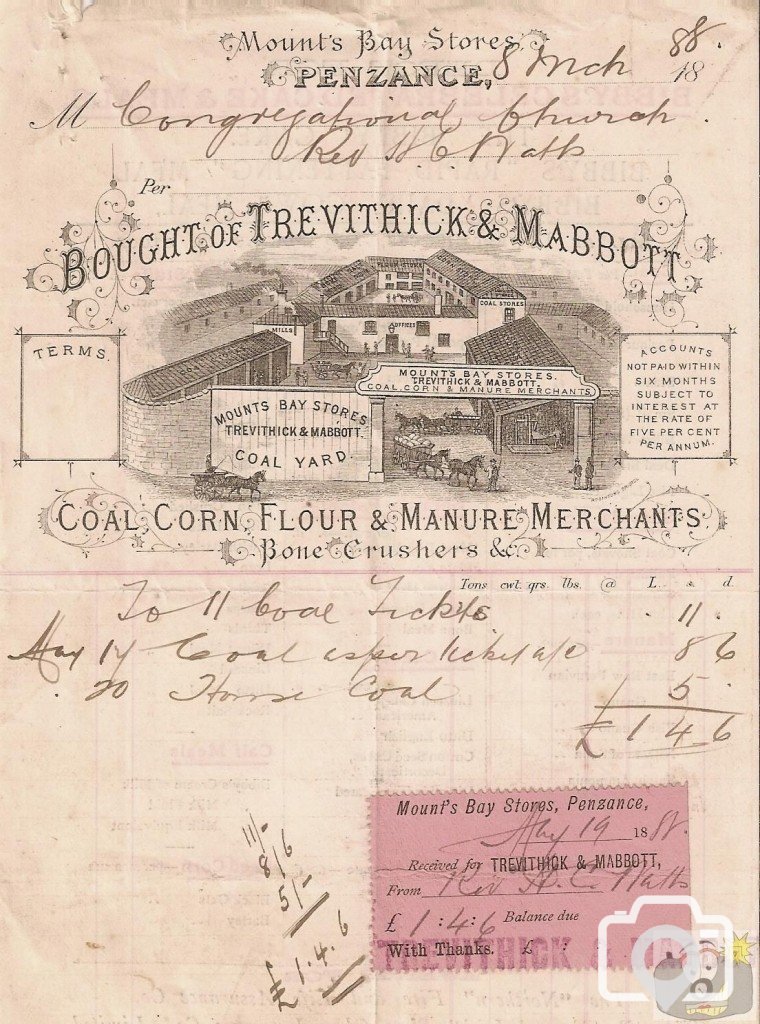 Mount's Bay Stores,
PENZANCE, 8 Mch 1888.
M Congregational Church
Rev H C Watts
Per
BOUGHT OF TREVITHICK & MABBOTT
TERMS.
ACCOUNTS
NOT PAID WITHIN
SIX MONTHS
SUBJECT TO
INTEREST AT
THE RATE OF
FIVE PER CENT
PER ANNUM.
COAL STORES
MILLS
OFFICES
MOUNTS BAY STORES.
TREVITHICK & MABBOTT.
COAL, CORN & MANURE MERCHANTS.
MOUNTS BAY STORES
TREVITHICK & MABBOTT.
COAL YARD.
COAL, CORN, FLOUR & MANURE MERCHANTS.
Bone Crushers &c.
Tons cwt. qrs. lbs. @ L. s. d.
To 11 Coal Tickets . 11 .
May 17 Coal as per ticket 8 6
. 20 House Coal 5 .
£ 1 4 6
11/-
8/6
5/-
£1.4.6
Mount's Bay Stores, Penzance,
May 19 1888.
Received for TREVITHICK & MABBOTT,
From Rev H. C. Watts
£ 1:4:6 Balance due
With Thanks. £ :
TREVITHICK & MA